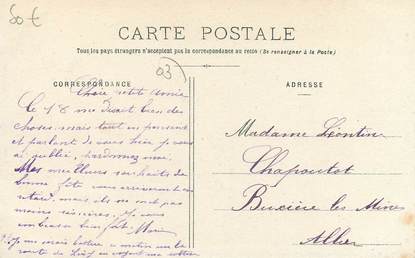 50 €
CARTE POSTALE
Tous les pays étrangers n'acceptent pas la correspondance au recto (Se renseigner à la Poste)
03
CORRESPONDANCE
ADRESSE
Chère petite amie
bien des
choses mais tout en pensant
et parlant de vous hier je vous
ai oublié, pardonnez moi.
Mes meilleurs souhaits de
bonne fête vous arriveront en
retard, mais ils ne sont pas
moins sincères, je vous
embrasse bien fort. Marie
Madame Léontine
Chapoutot
Buxière les Mines
Allier